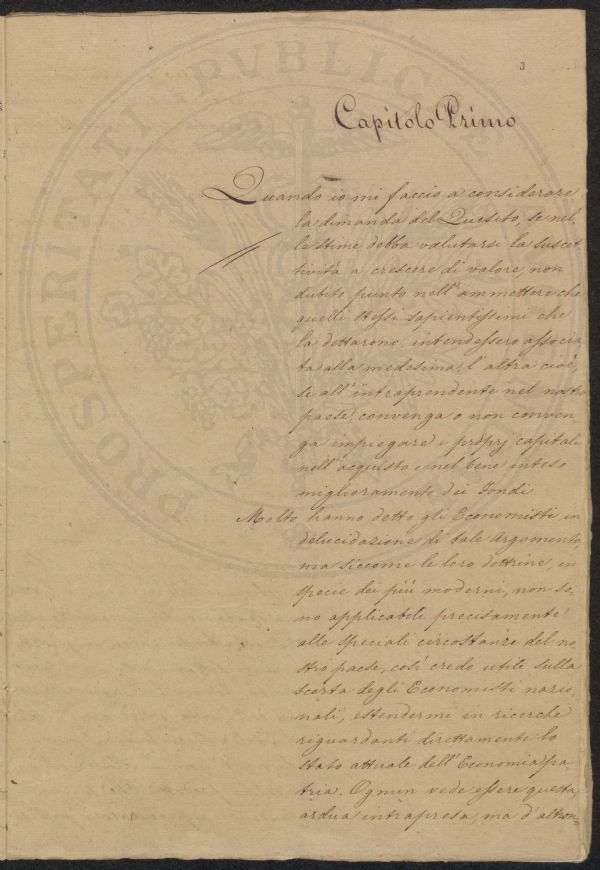 3
Capitolo Primo
Quando io mi faccio a considerare
la dimanda del Quesito, se nel=
le stime debba valutarsi la suscet
tività a crescere di valore, non
dubito punto nell'ammettere che
quelli stessi sapientissimi che
la dettarono, intendessero associa
ta alla medesima, l'altra cioè,
se all'intraprendente nel nostro
paese, convenga o non conven
ga impiegare i proprj capitali
nell'acquisto e nel bene inteso
miglioramento dei Fondi.
Molto hanno detto gli Economisti in
delucidazione di tale Argomento,
ma siccome le loro dottrine, in
specie dei più moderni, non so,
no applicabili precisamente
alle speciali circostanze del no
stro paese, così credo utile sulla
scorta degli Economisti nazio
nali, estendermi in ricerche
riguardanti direttamente lo
stato attuale dell'Economia pa
tria. Ognun vede essere questa
ardua intrapresa, ma d'altron=
PROSPERITATI PUBLICAE